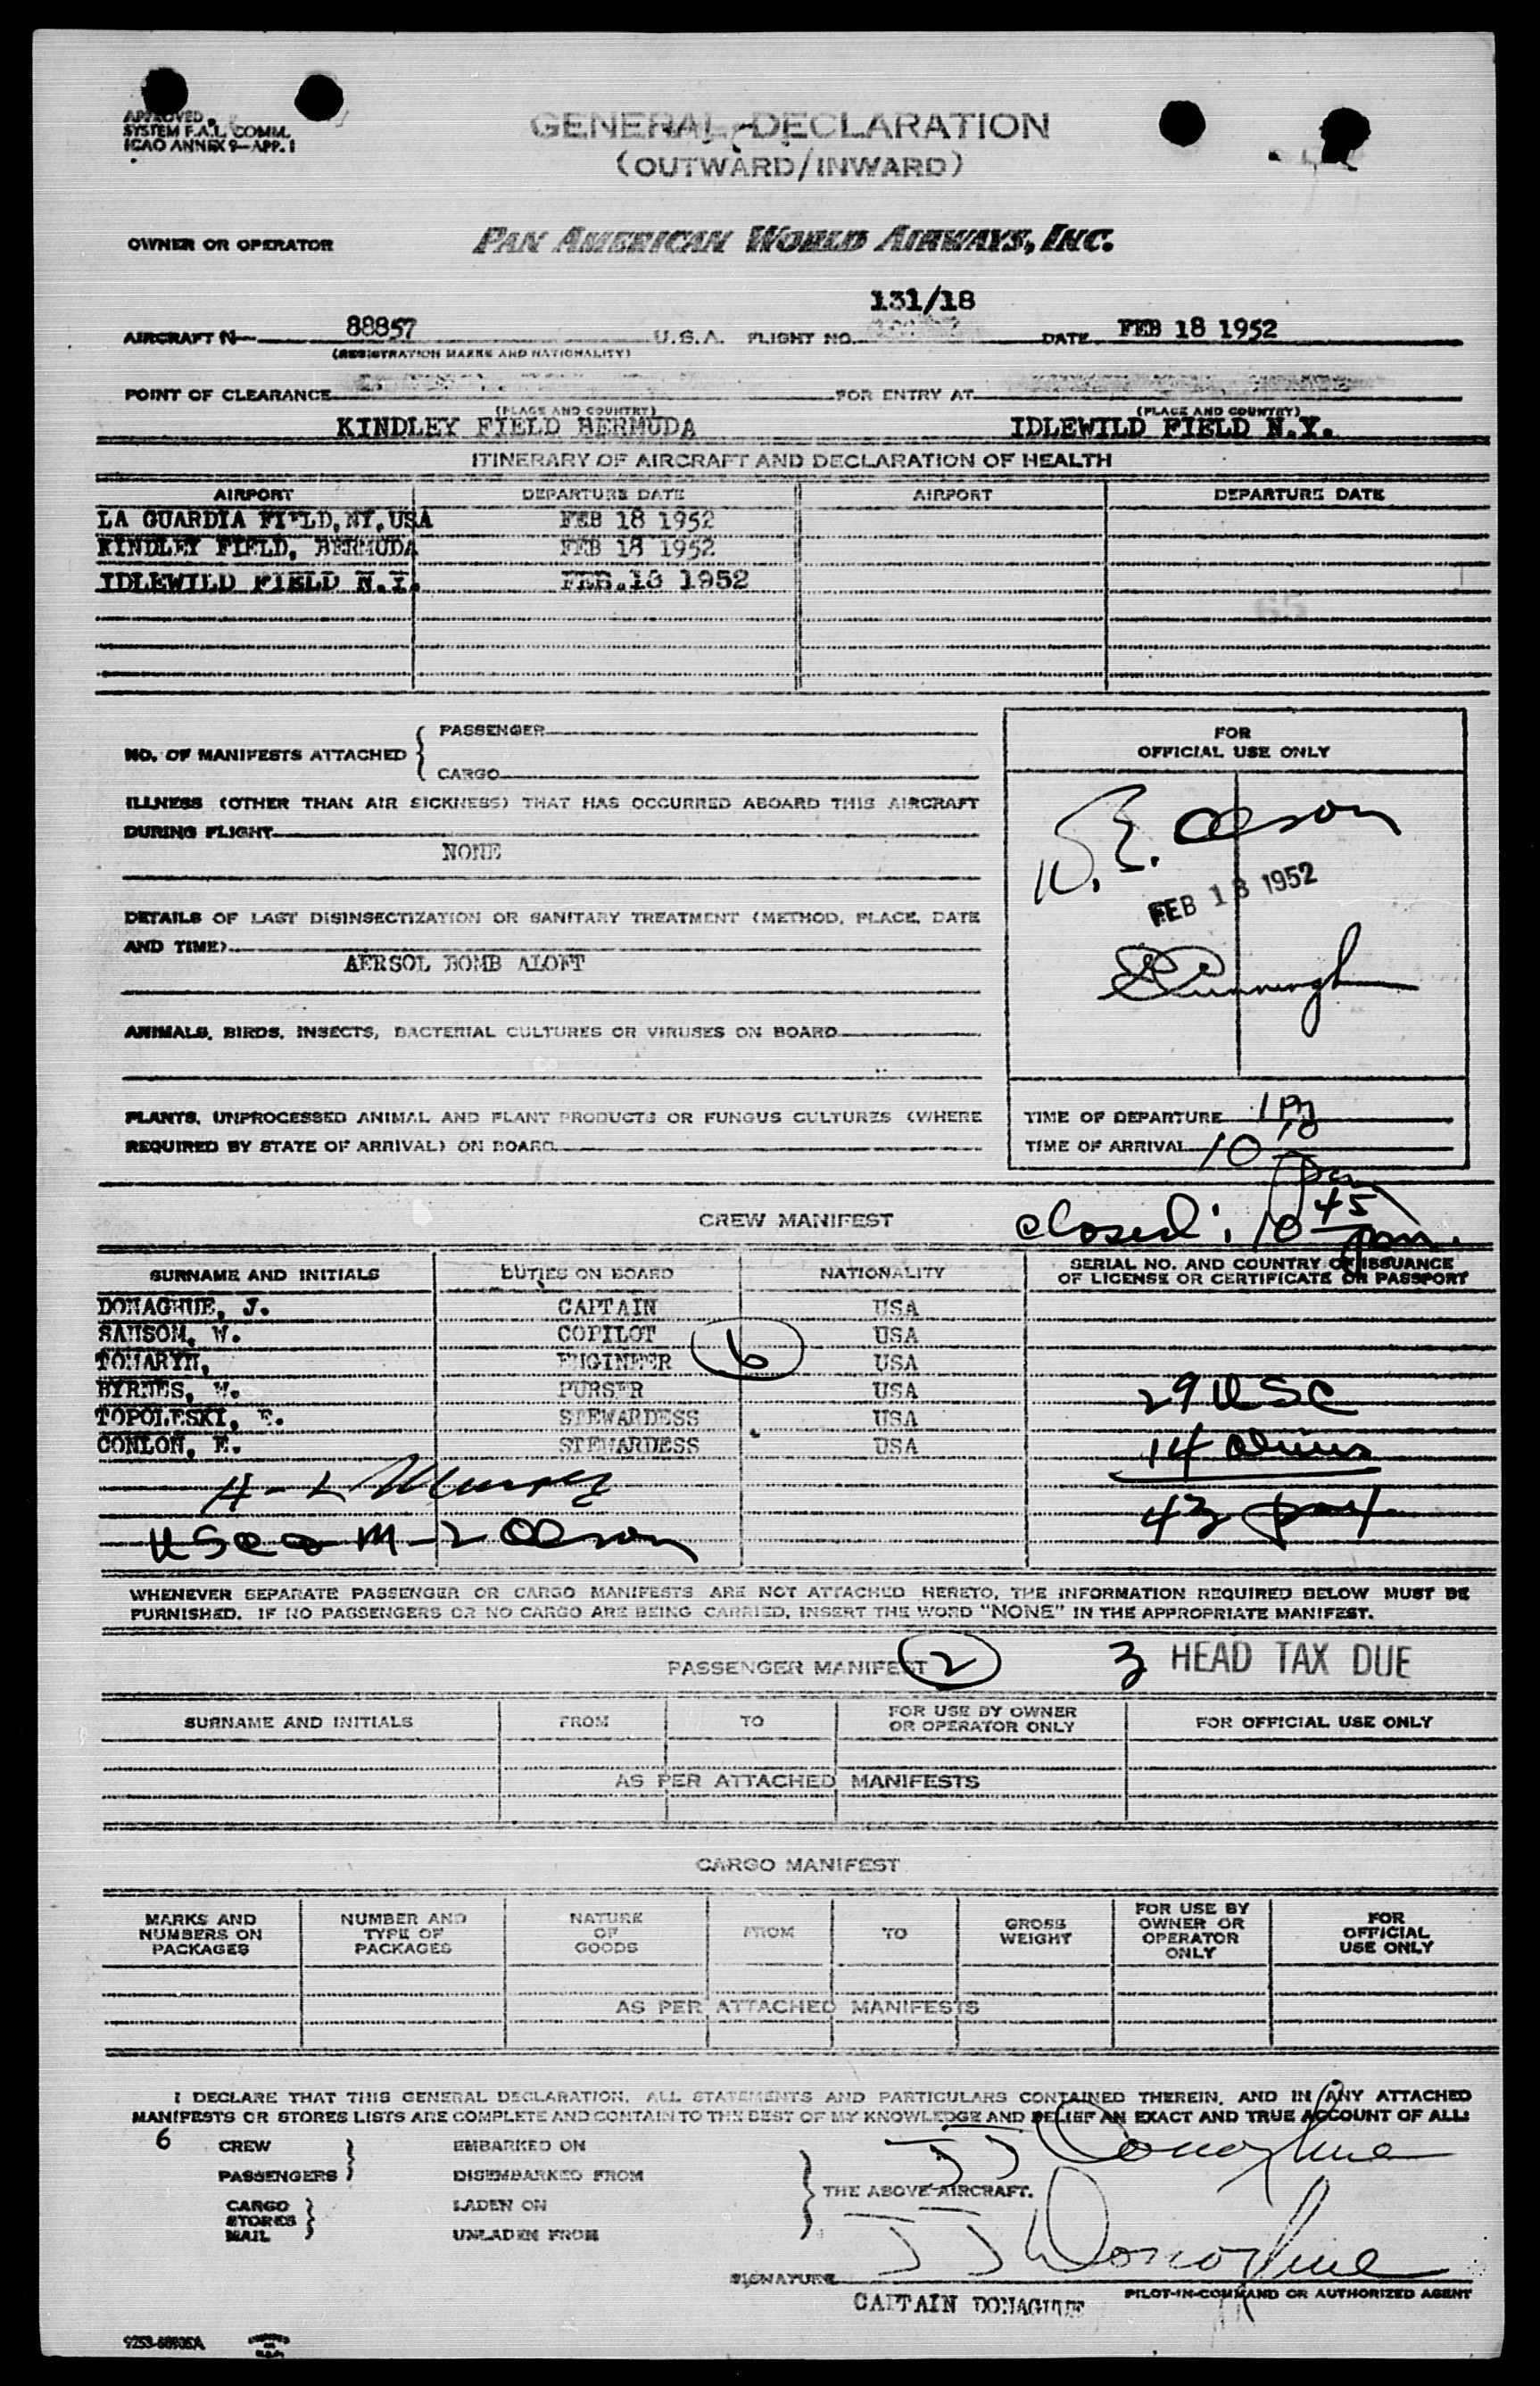 APPROVED
SYSTEM F.A.L. COMM.
ICAO ANNEX 9—APP. 1
GENERAL DECLARATION
(OUTWARD/INWARD)
OWNER OR OPERATOR PAN AMERICAN WORLD AIRWAYS, INC.
131/18
AIRCRAFT N— 88857 U.S.A. FLIGHT NO. DATE FEB 18 1952
(REGISTRATION MARKS AND NATIONALITY)
POINT OF CLEARANCE FOR ENTRY AT
(PLACE AND COUNTRY) (PLACE AND COUNTRY)
KINDLEY FIELD BERMUDA IDLEWILD FIELD N.Y.
ITINERARY OF AIRCRAFT AND DECLARATION OF HEALTH
AIRPORT DEPARTURE DATE AIRPORT DEPARTURE DATE
LA GUARDIA FIELD, NY, USA FEB 18 1952
KINDLEY FIELD, BERMUDA FEB 18 1952
IDLEWILD FIELD N.Y. FEB.18 1952
NO. OF MANIFESTS ATTACHED { PASSENGER
CARGO
FOR
OFFICIAL USE ONLY
ILLNESS (OTHER THAN AIR SICKNESS) THAT HAS OCCURRED ABOARD THIS AIRCRAFT
DURING FLIGHT
NONE
W. E. Olson
FEB 18 1952
DETAILS OF LAST DISINSECTIZATION OR SANITARY TREATMENT (METHOD, PLACE, DATE
AND TIME)
AERSOL BOMB ALOFT
Cunningham
ANIMALS, BIRDS, INSECTS, BACTERIAL CULTURES OR VIRUSES ON BOARD
PLANTS, UNPROCESSED ANIMAL AND PLANT PRODUCTS OR FUNGUS CULTURES (WHERE
REQUIRED BY STATE OF ARRIVAL) ON BOARD
TIME OF DEPARTURE
TIME OF ARRIVAL 10 10 pm
closed: 10 45 pm.
CREW MANIFEST
SURNAME AND INITIALS DUTIES ON BOARD NATIONALITY SERIAL NO. AND COUNTRY OF ISSUANCE
OF LICENSE OR CERTIFICATE OR PASSPORT
DONAGHUE, J. CAPTAIN USA
SAMSOM, W. COPILOT USA
TOMARYN, ENGINEER 6 USA
BYRNES, W. PURSER USA 29 USC
TOPOLESKI, E. STEWARDESS USA
CONLON, E. STEWARDESS USA 14 aliens
A-L Murphy
43 pax
USC a M-2 Olson
WHENEVER SEPARATE PASSENGER OR CARGO MANIFESTS ARE NOT ATTACHED HERETO, THE INFORMATION REQUIRED BELOW MUST BE
FURNISHED. IF NO PASSENGERS OR NO CARGO ARE BEING CARRIED, INSERT THE WORD "NONE" IN THE APPROPRIATE MANIFEST.
PASSENGER MANIFEST 2 3 HEAD TAX DUE
SURNAME AND INITIALS FROM TO FOR USE BY OWNER
OR OPERATOR ONLY FOR OFFICIAL USE ONLY
AS PER ATTACHED MANIFESTS
CARGO MANIFEST
MARKS AND
NUMBERS ON
PACKAGES NUMBER AND
TYPE OF
PACKAGES NATURE
OF
GOODS FROM TO GROSS
WEIGHT FOR USE BY
OWNER OR
OPERATOR
ONLY FOR
OFFICIAL
USE ONLY
AS PER ATTACHED MANIFESTS
I DECLARE THAT THIS GENERAL DECLARATION, ALL STATEMENTS AND PARTICULARS CONTAINED THEREIN, AND IN ANY ATTACHED
MANIFESTS OR STORES LISTS ARE COMPLETE AND CONTAIN TO THE BEST OF MY KNOWLEDGE AND BELIEF AN EXACT AND TRUE ACCOUNT OF ALL:
6 CREW EMBARKED ON JJ Donoghue
PASSENGERS DISEMBARKED FROM
THE ABOVE AIRCRAFT.
CARGO LADEN ON
STORES
MAIL UNLADEN FROM
JJ Donoghue
SIGNATURE
CAPTAIN DONAGHUE PILOT-IN-COMMAND OR AUTHORIZED AGENT